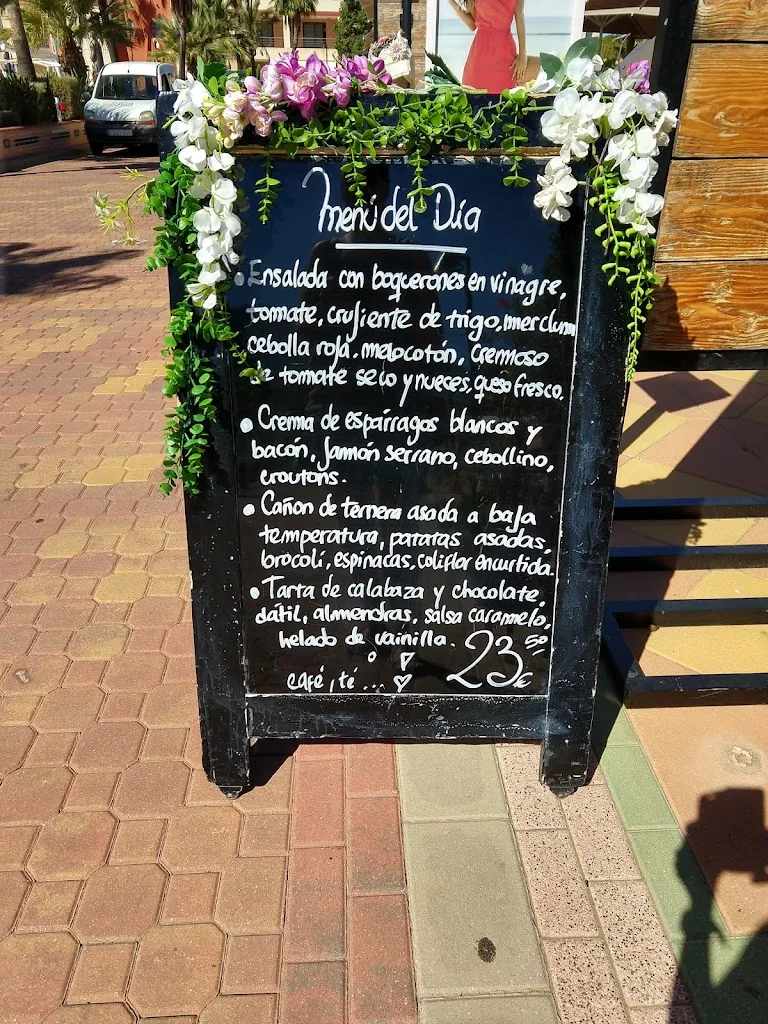 Menú del Día
• Ensalada con boquerones en vinagre,
tomate, crujiente de trigo, merclum
cebolla roja, melocotón, cremoso
de tomate seco y nueces, queso fresco.
• Crema de espárragos blancos y
bacón, Jamón serrano, cebollino,
croutons.
• Cañon de ternera asada a baja
temperatura, patatas asadas,
brocolí, espinacas, coliflor encurtida.
• Tarta de calabaza y chocolate,
dátil, almendras, salsa caramelo,
helado de vainilla.
ó
café, té...
23 50 €